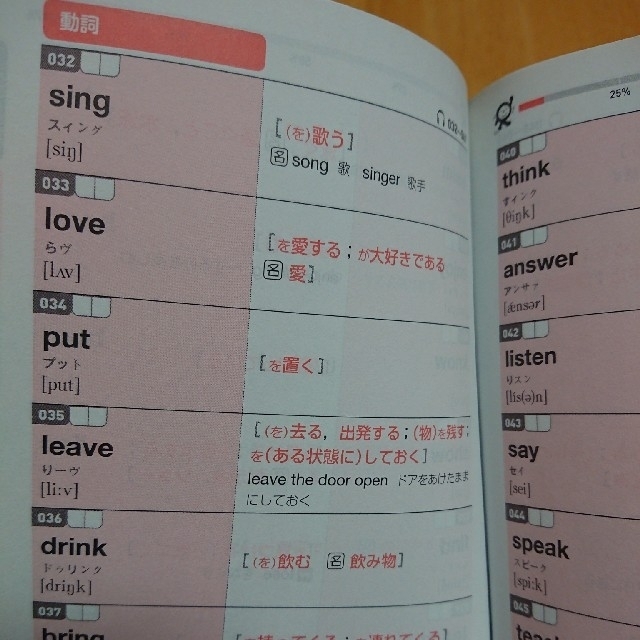 動詞
032
sing
スィング
[siŋ]
[(を)歌う]
名 song 歌 singer 歌手
033
love
らヴ
[lʌv]
[を愛する;が大好きである
名 愛]
034
put
プット
[put]
[を置く]
035
leave
りーヴ
[liːv]
[(を)去る, 出発する;(物)を残す;
を(ある状態に)しておく]
leave the door open ドアをあけたまま
にしておく
036
drink
ドゥリンク
[driŋk]
[(を)飲む 名 飲み物]
037
bring
25%
040
think
すィンク
[θiŋk]
041
answer
アンサァ
[ǽnsər]
042
listen
リスン
[lís(ə)n]
043
say
セイ
[sei]
044
speak
スピーク
[spiːk]
045